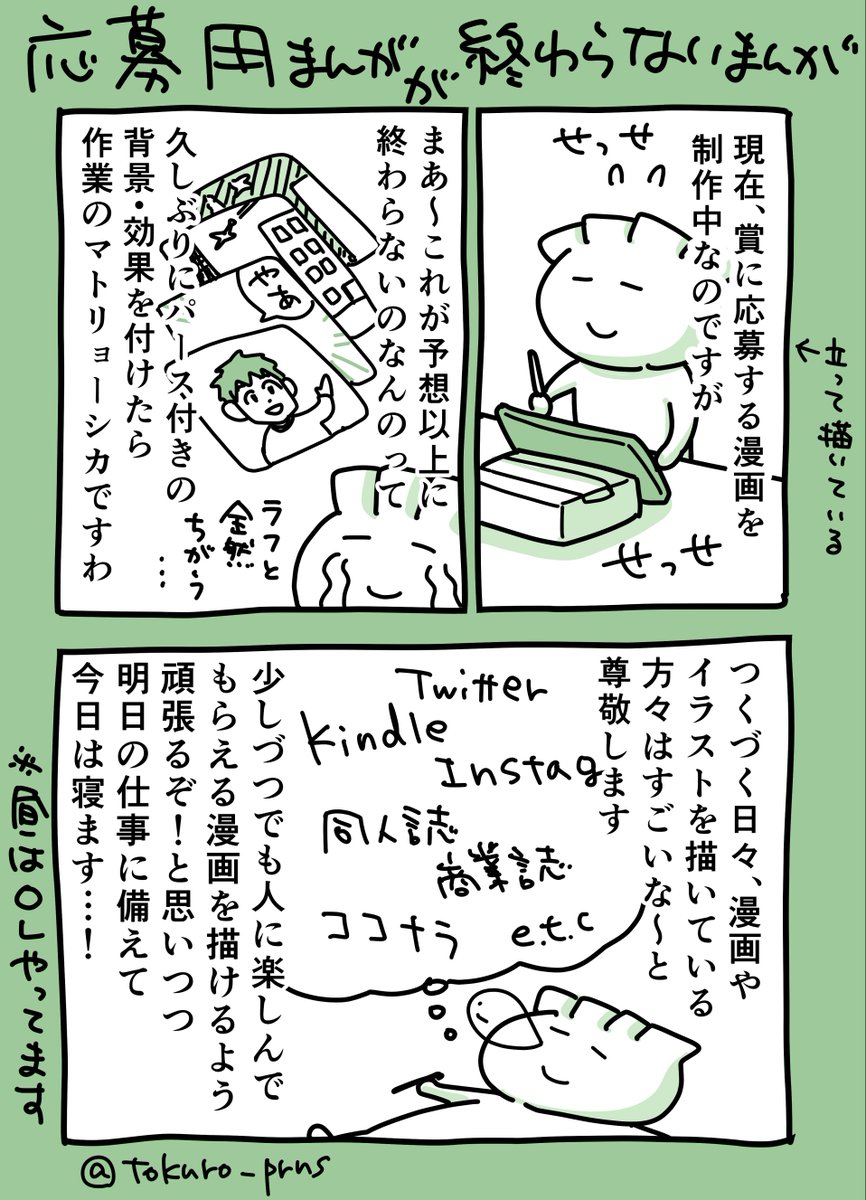 応募用まんがが終わらないまんが
せっせ
現在、賞に応募する漫画を
制作中なのですが
←立って描いている
せっせ
まあ～これが予想以上に
終わらないのなんのって
やあ
久しぶりにパース付きの
背景・効果を付けたら
作業のマトリョーシカですわ
ラフと
全然
ちがう
…
つくづく日々、漫画や
イラストを描いている
方々はすごいな～と
尊敬します
Twitter
Kindle
Instag
同人誌
商業誌
ココナラ
e.t.c
少しづつでも人に楽しんで
もらえる漫画を描けるよう
頑張るぞ！と思いつつ
明日の仕事に備えて
今日は寝ます…！
※昼はOLやってます
@tokuro_prns